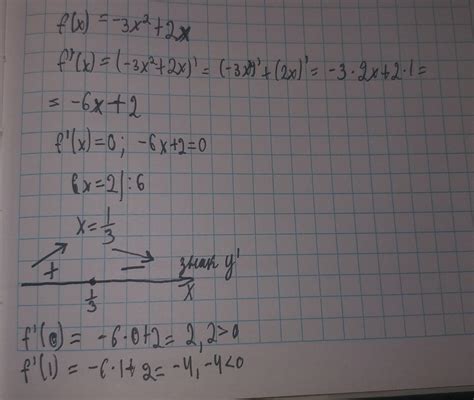 f(x) = -3x² + 2x
f'(x) = (-3x²+2x)' = (-3x²)' + (2x)' = -3·2x+2·1 =
= -6x+2
f'(x)=0; -6x+2=0
6x=2|:6
x = 1/3
+ − знак y'
1/3 x
f'(0) = -6·0+2 = 2, 2>0
f'(1) = -6·1+2 = -4, -4<0